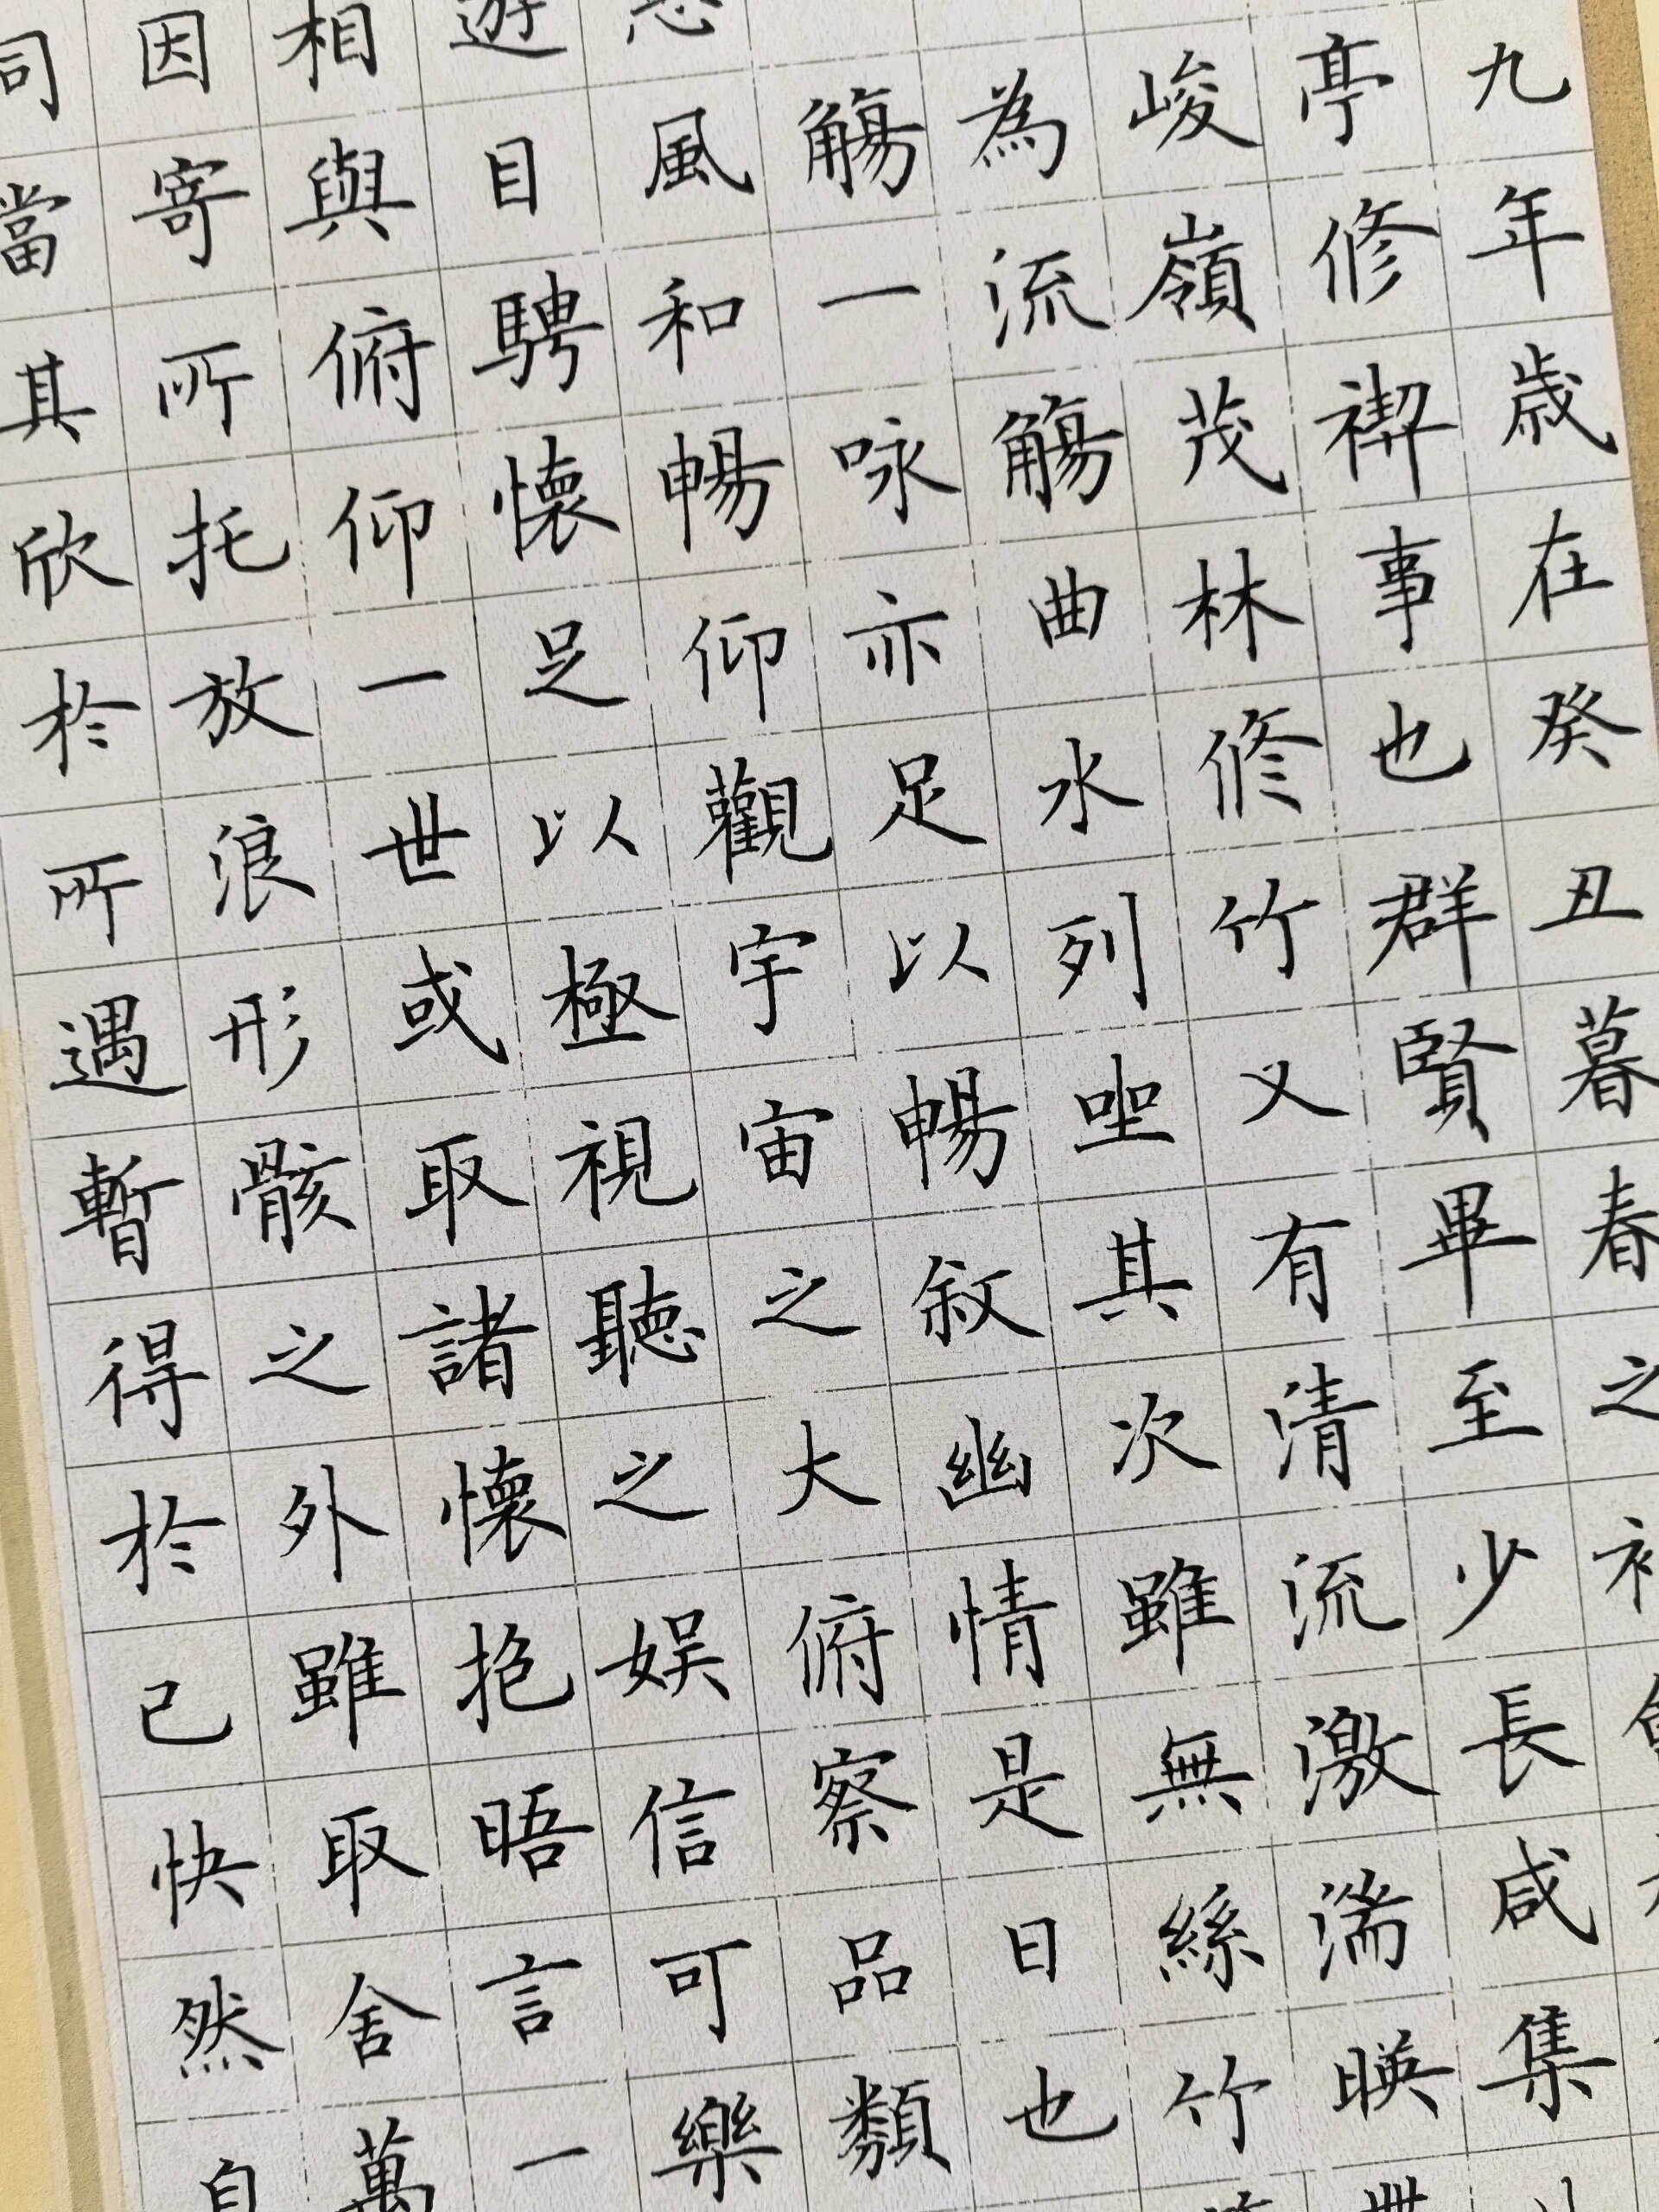 九年歳在癸丑暮春之
亭修禊事也群賢畢至少長咸集
峻嶺茂林修竹又有清流激湍暎
為流觴曲水列坐其次雖無絲竹
觴一咏亦足以暢叙幽情是日也
風和暢仰觀宇宙之大俯察品類
遊目騁懷足以極視聽之娱信可樂
相與俯仰一世或取諸懷抱晤言一
因寄所托放浪形骸之外雖取舍萬
同當其欣於所遇暫得於己快然自